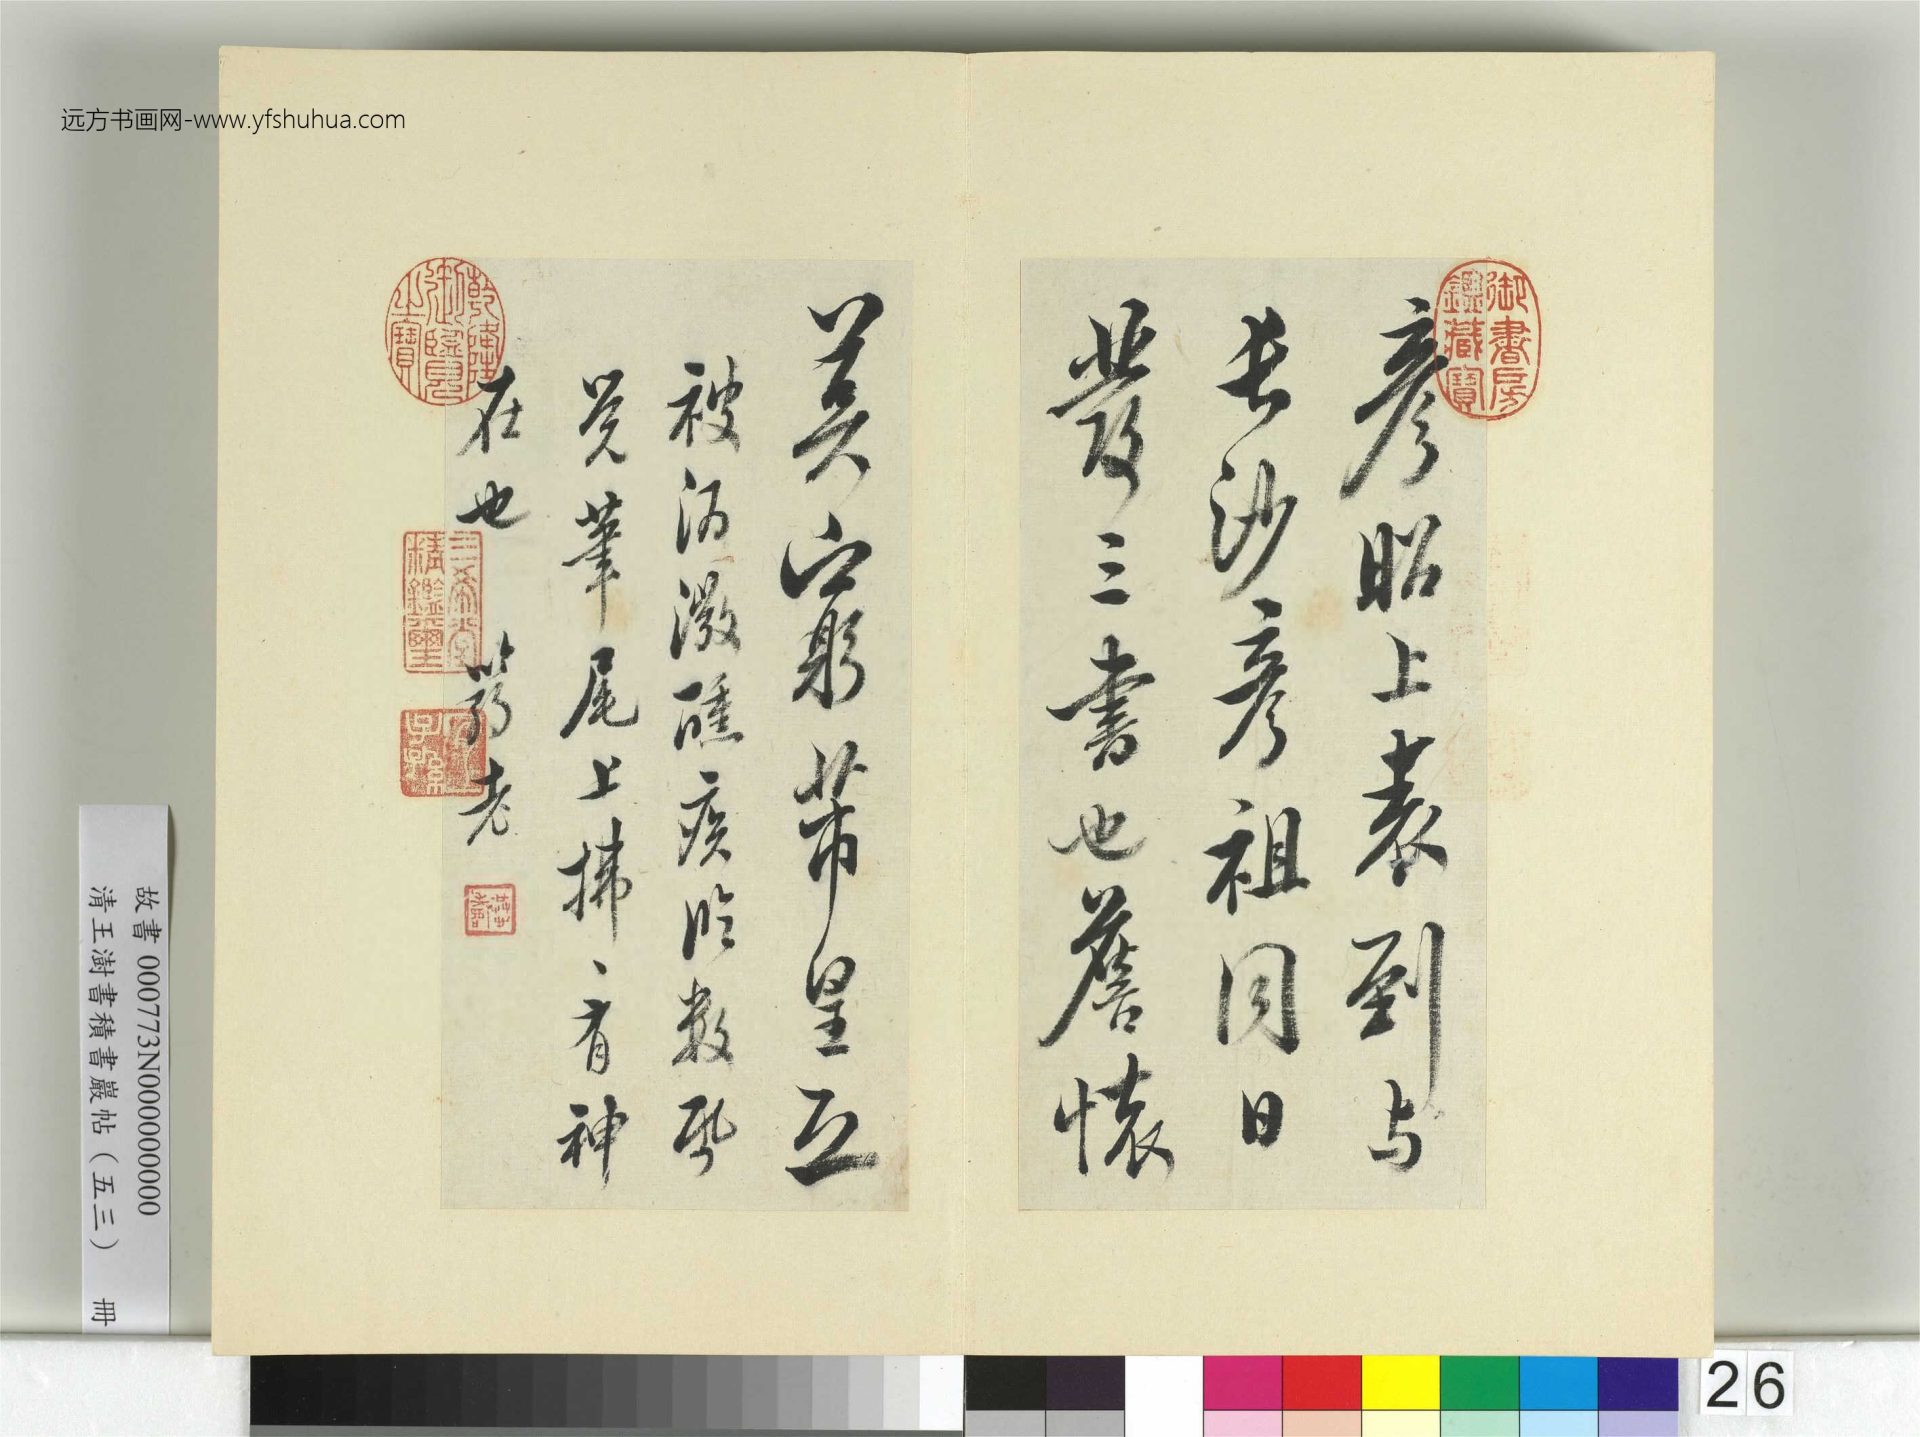 远方书画网-www.yfshuhua.com
御書房
鑑藏寶
彦昭上表到与
長沙彦祖同日
發三書也舊懷
莫穷躬芾皇恐
被酒激醺疾臨數番
覺筆尾上拂拂有神
在也 蒻老
乾隆
御覽
之寶
三希堂
精鑑璽
宜子孫
故書 000773N000000000
清王澍書積書巖帖(五三) 冊
26